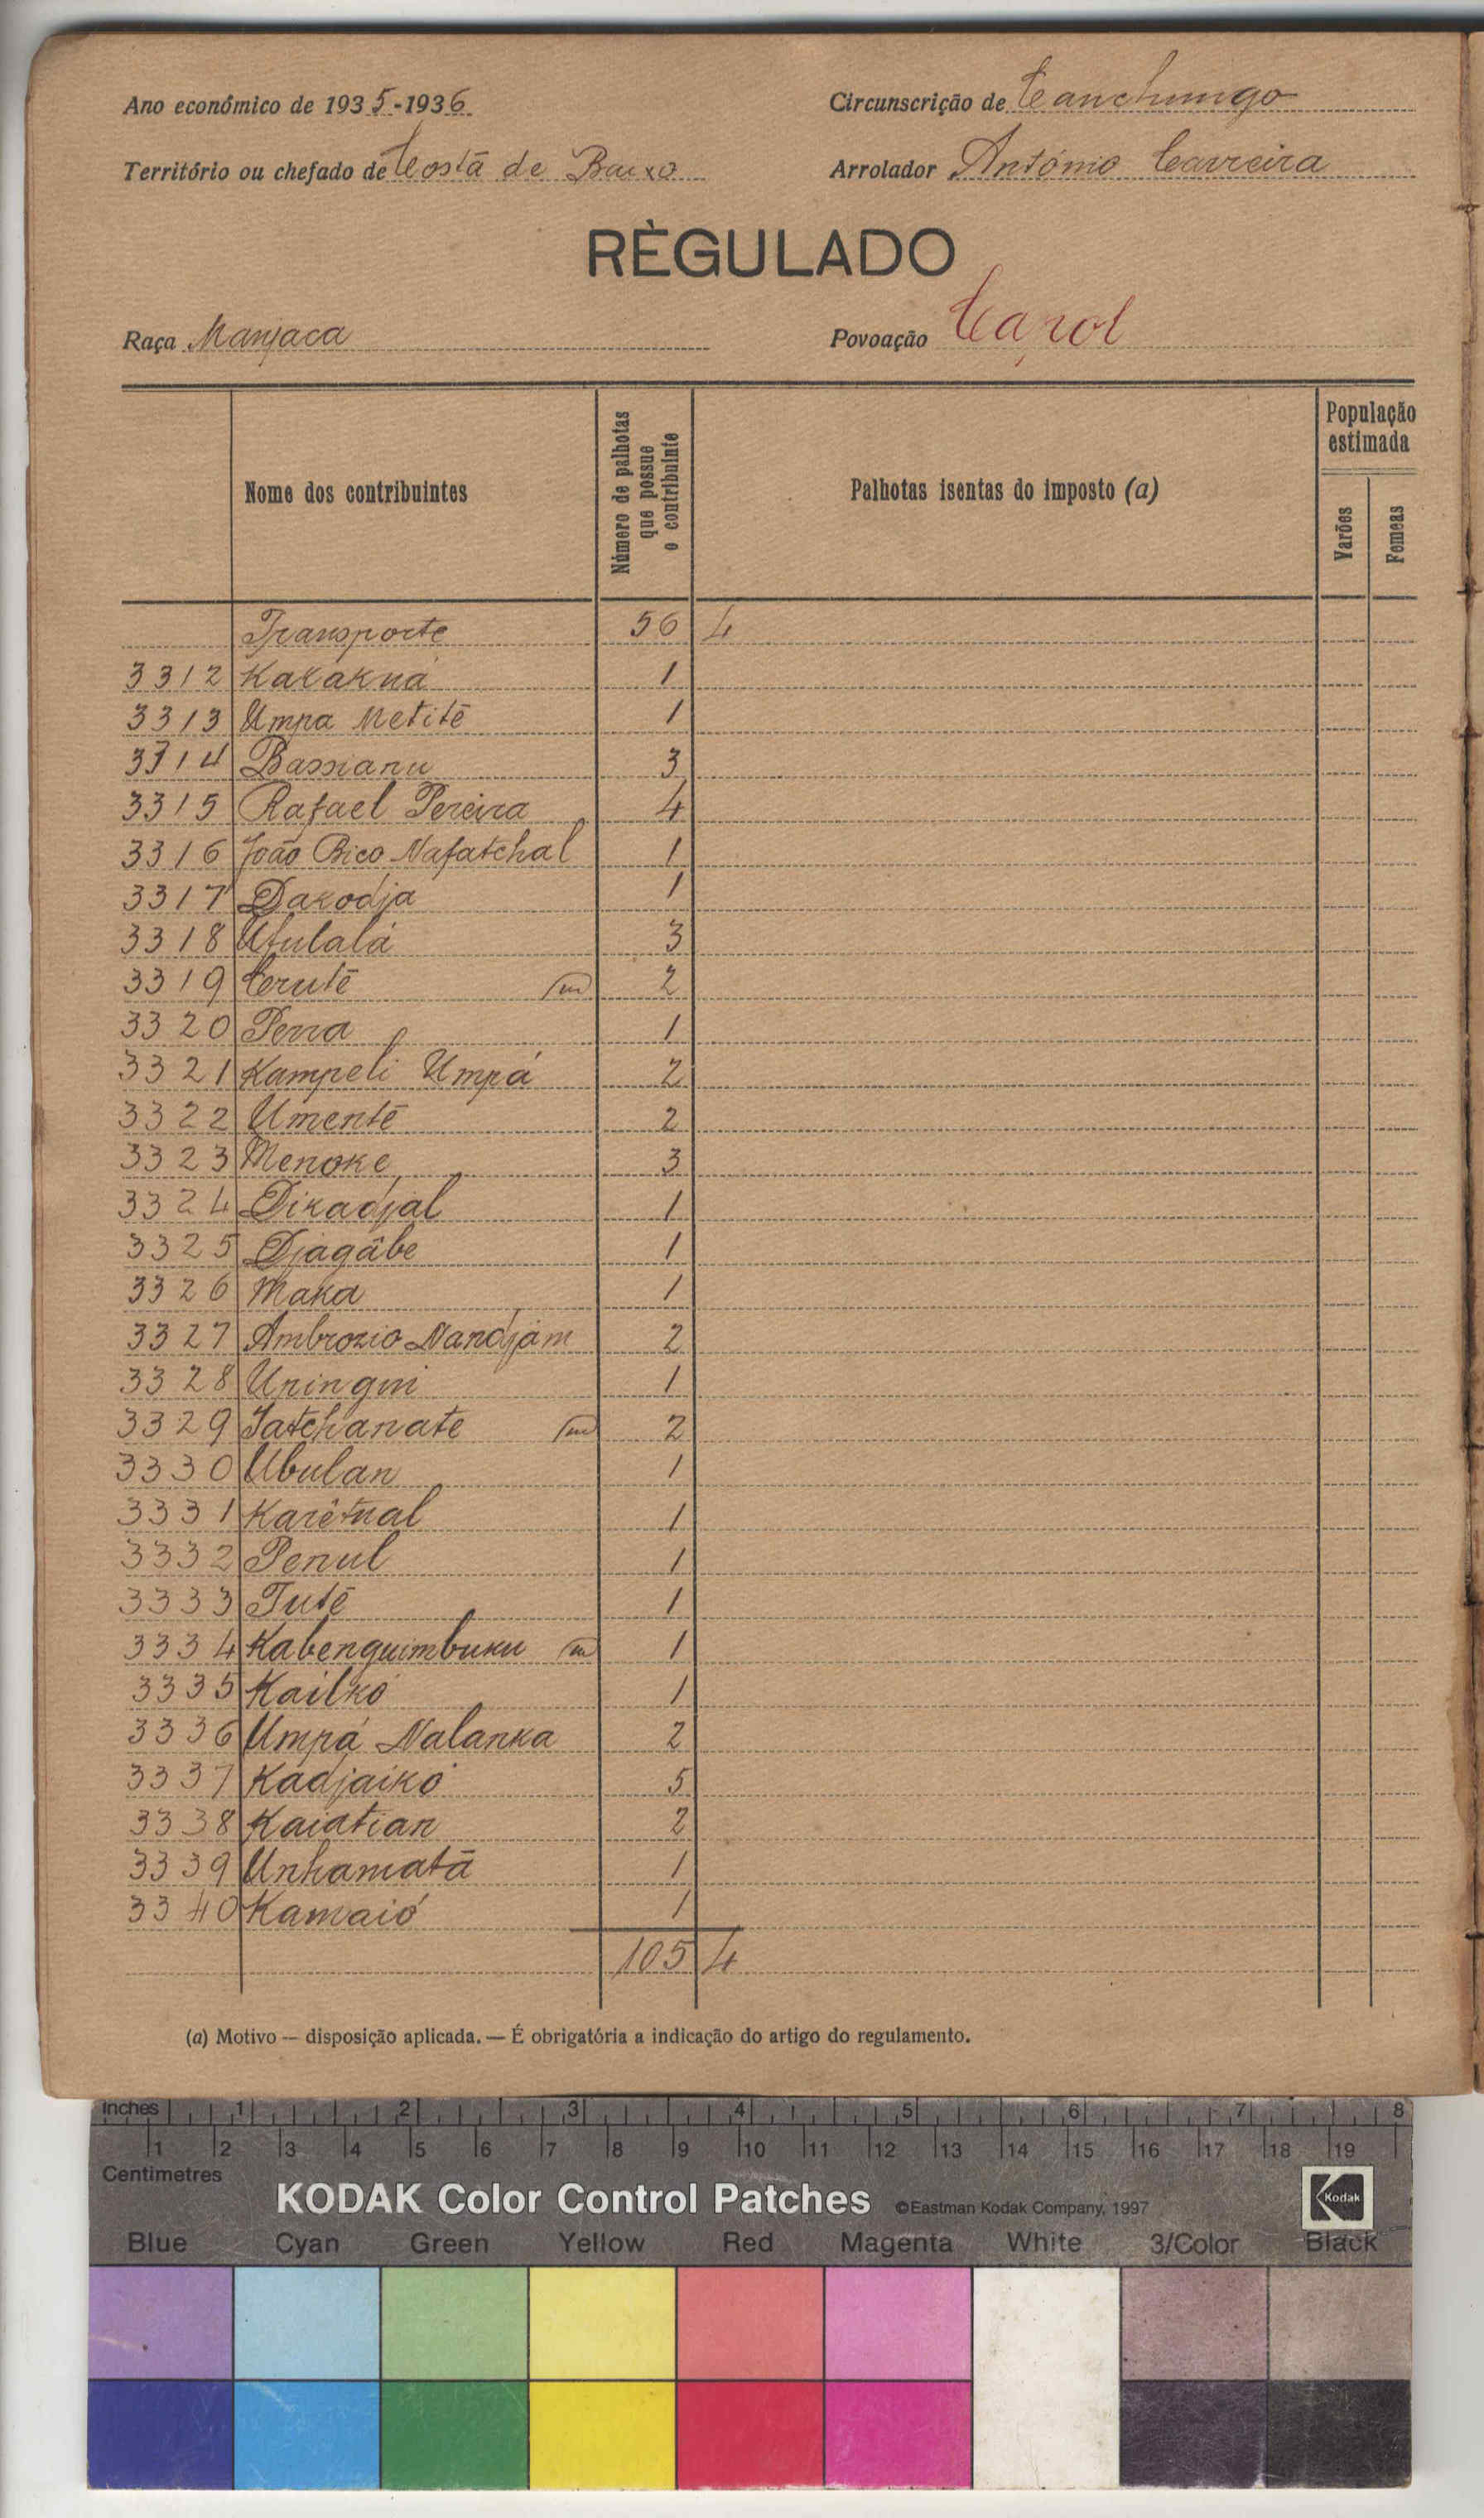 Ano económico de 1935-1936 Circunscrição de Canchungo
Território ou chefado de Costa de Baixo Arrolador António Carreira
RÈGULADO
Raça Manjaca Povoação Carol
Nome dos contribuintes Número de palhotas que possue o contribuinte Palhotas isentas do imposto (a) População estimada Varões Femeas
Transporte 56 4
3312 Karakná 1
3313 Umpa Metitē 1
3314 Bassianu 3
3315 Rafael Pereira 4
3316 João Bico Nafatchal 1
3317 Dakodja 1
3318 Ufulalá 3
3319 Cerutē m 2
3320 Penra 1
3321 Kampeli Umpá 2
3322 Umentē 2
3323 Menoke 3
3324 Dikadjal 1
3325 Djagâbe 1
3326 Maka 1
3327 Ambrozio Nandjam 2
3328 Uningui 1
3329 Jatchanate m 2
3330 Ubulan 1
3331 Karêtnal 1
3332 Penul 1
3333 Tutē 1
3334 Kabenguimbuku m 1
3335 Kailkó 1
3336 Umpá Nalanka 2
3337 Kadjaikó 5
3338 Kaiatian 2
3339 Unhamatā 1
3340 Kamaió 1
105 4
(a) Motivo — disposição aplicada. — É obrigatória a indicação do artigo do regulamento.
Inches 1 2 3 4 5 6 7 8
1 2 3 4 5 6 7 8 9 10 11 12 13 14 15 16 17 18 19
Centimetres
KODAK Color Control Patches ©Eastman Kodak Company, 1997 Kodak
Blue Cyan Green Yellow Red Magenta White 3/Color Black